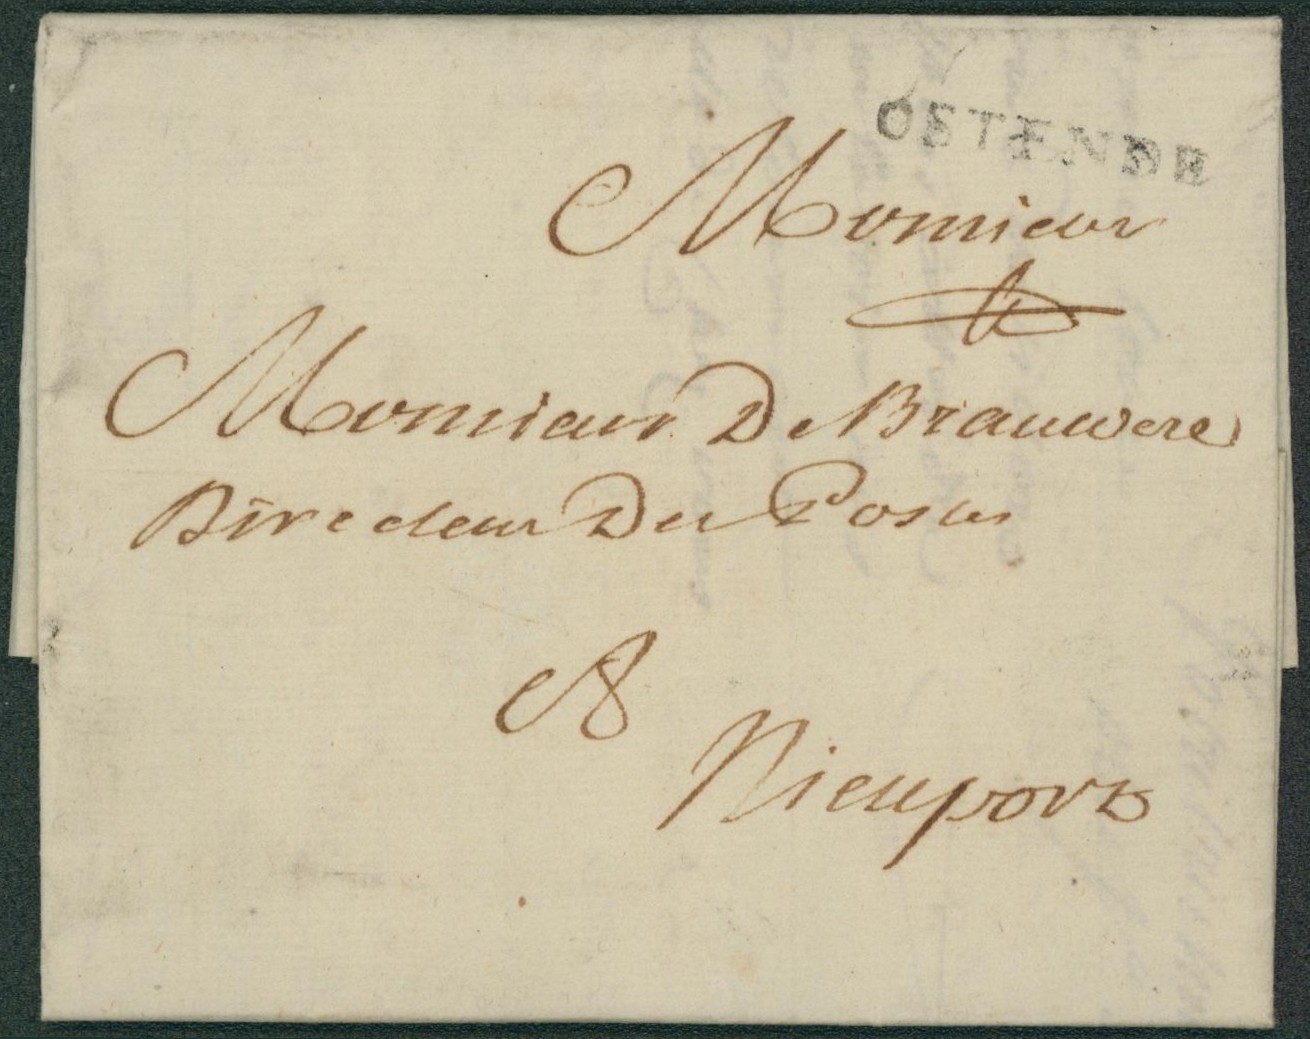 OSTENDE
Monsieur
Monsieur De Brauwere
Directeur Des Postes
A
Nieuport